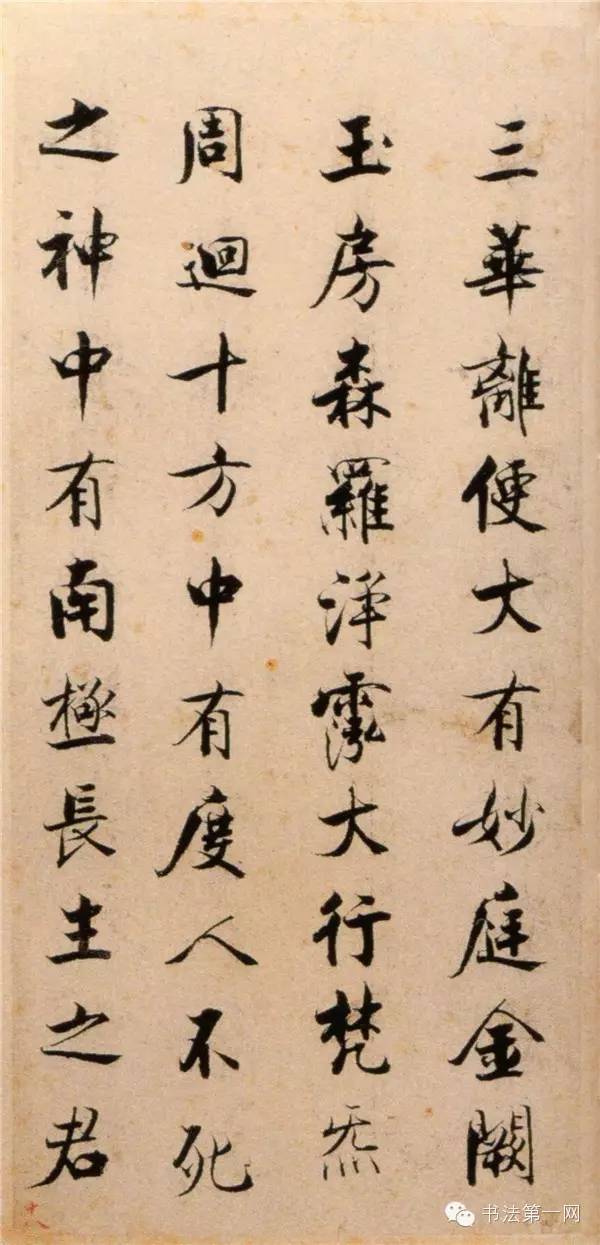 三華離便大有妙庭金闕
玉房森羅淨霐大行梵炁
周迴十方中有度人不死
之神中有南極長生之君
十八
书法第一网